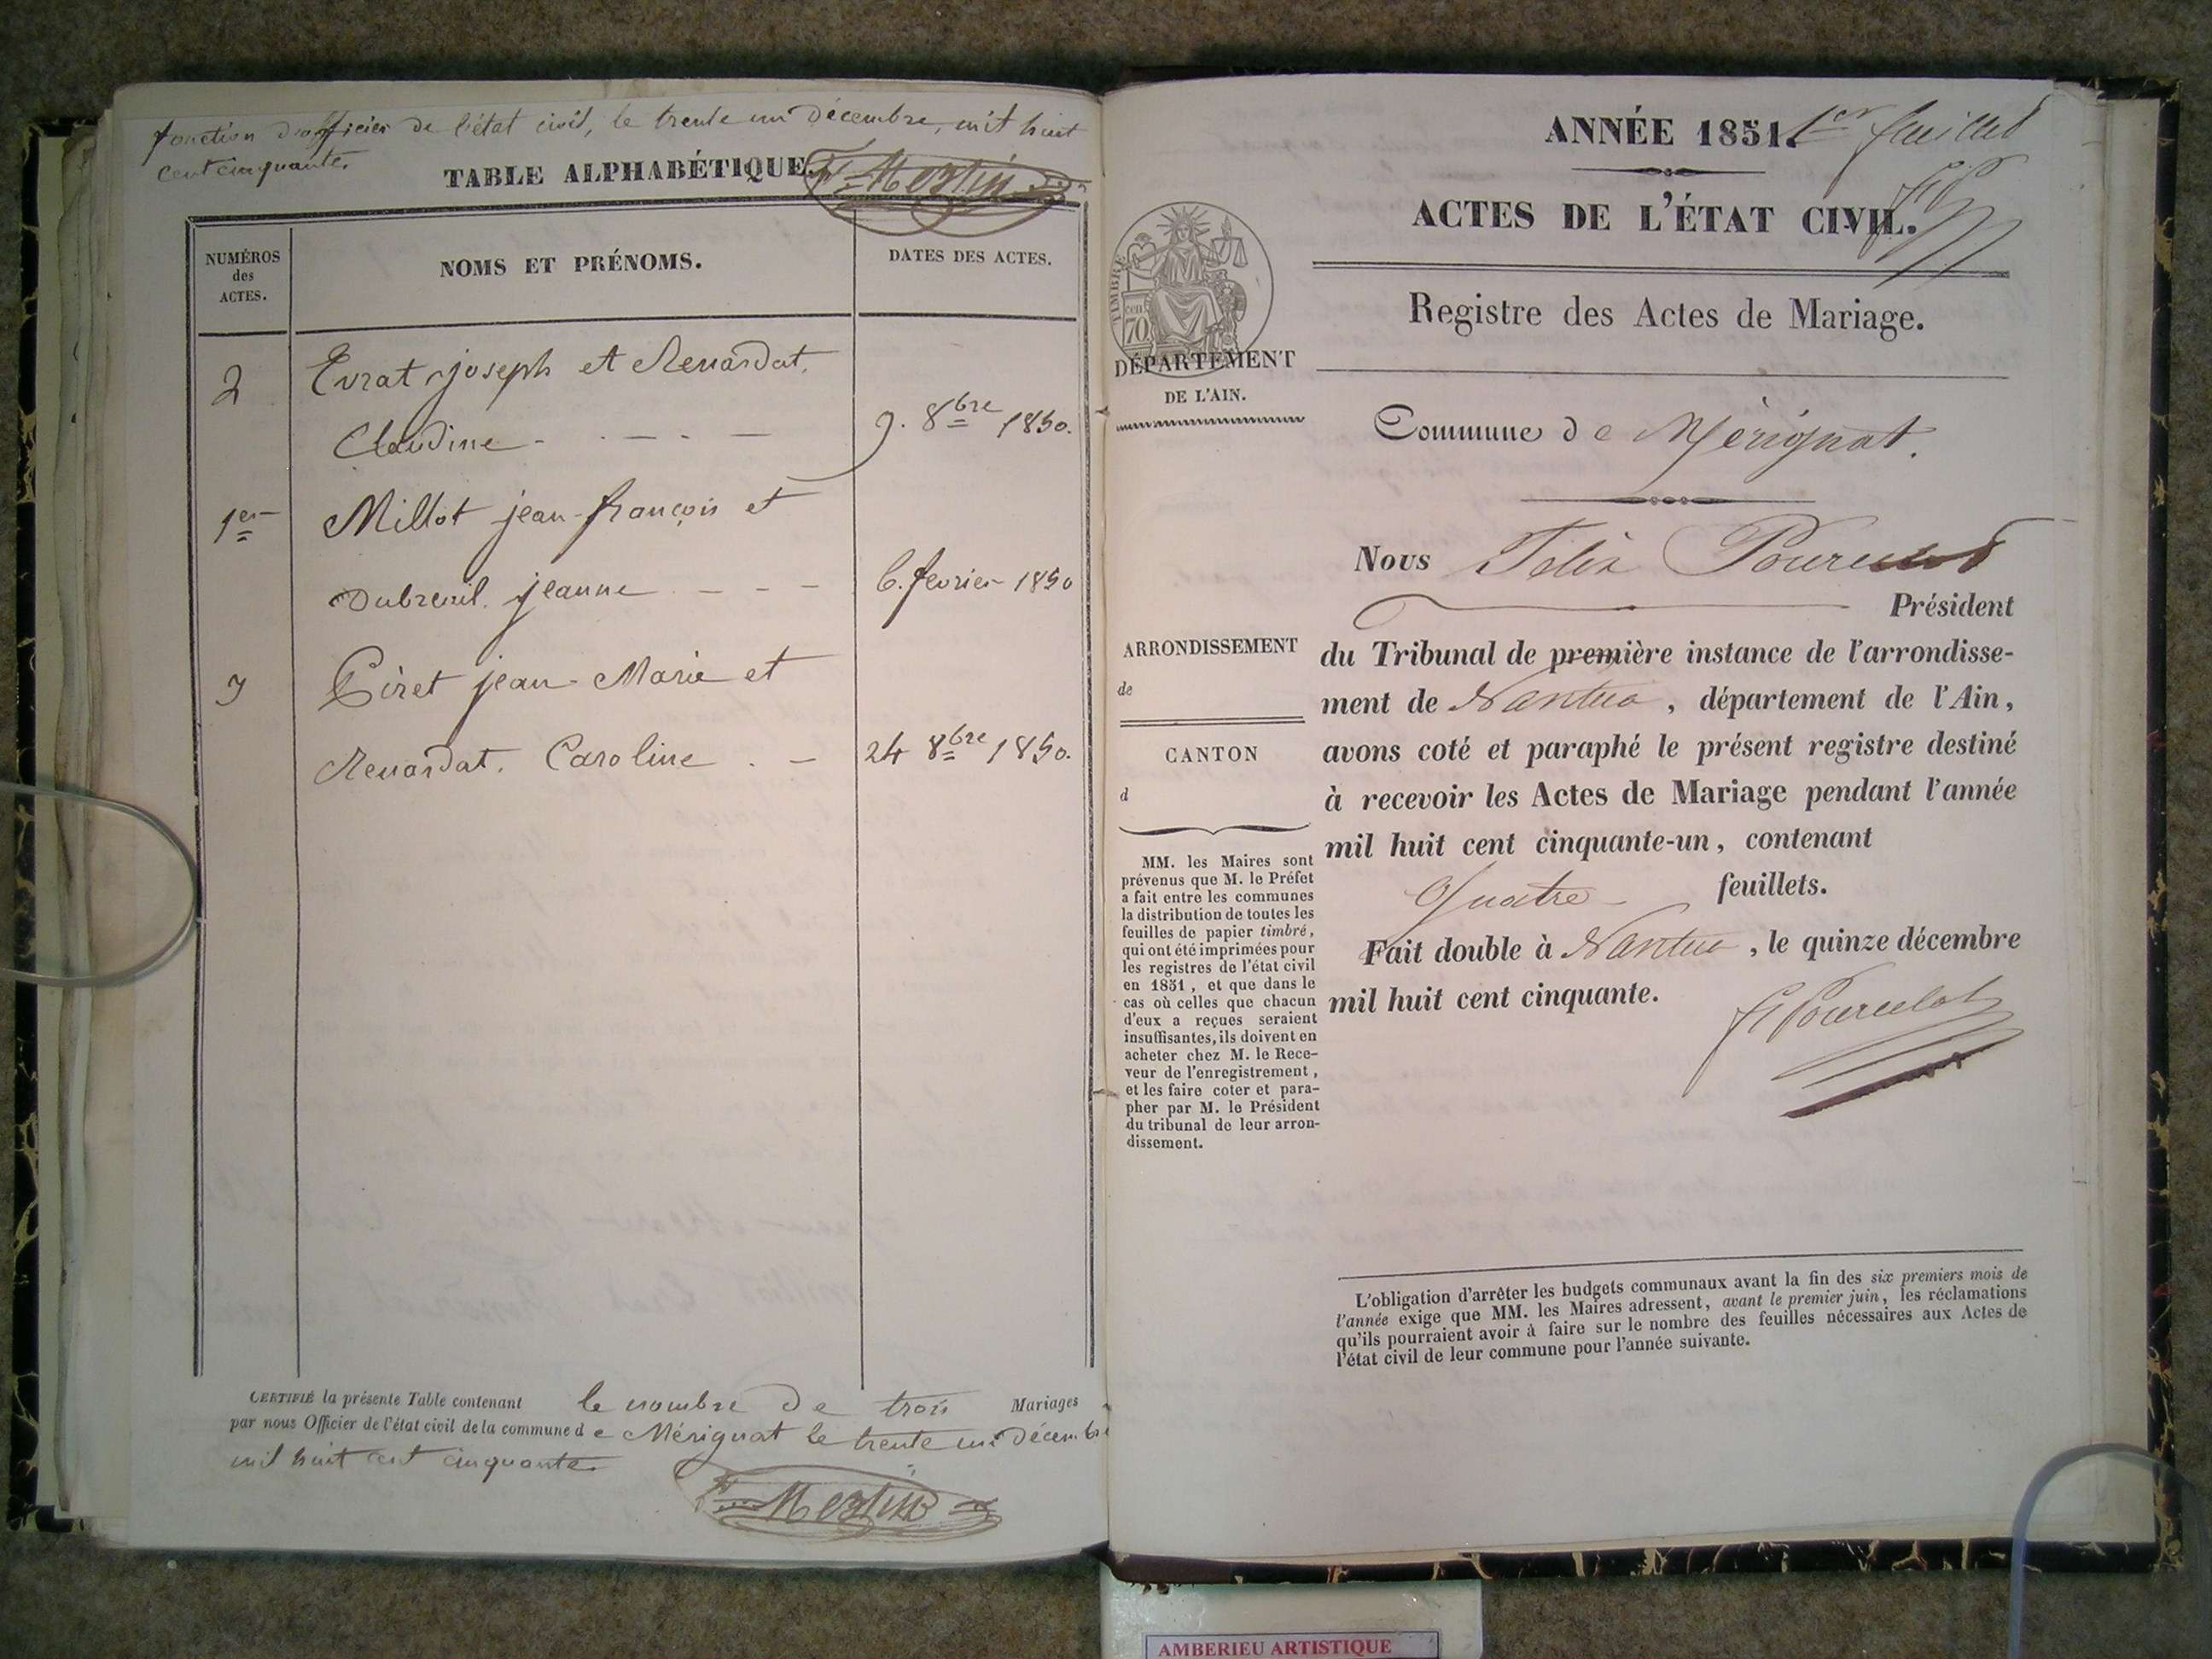 fonction d'officier de l'état civil, le trente un Décembre, mit huit
cent cinquante.
TABLE ALPHABÉTIQUE.
NUMÉROS des ACTES.
NOMS ET PRÉNOMS.
DATES DES ACTES.
2 Evrat joseph et Renardat.
Claudine - 9. 8bre 1850.
1er Millot jean-françois et
Dubreuil. jeanne - - - 6. fevrier 1850
3 Piret jean-Marie et
Renardat. Caroline . - 24 8bre 1850.
CERTIFIÉ la présente Table contenant le nombre de trois Mariages
par nous Officier de l'état civil de la commune de Mérignat le trente un Décembre
mil huit cent cinquante.
ANNÉE 1851. 1er feuillet
ACTES DE L'ÉTAT CIVIL.
Registre des Actes de Mariage.
TIMBRE
70
DÉPARTEMENT
DE L'AIN.
Commune de Mérignat.
Nous Félix Pourcelot
Président
ARRONDISSEMENT
de
CANTON
d
du Tribunal de première instance de l'arrondisse-
ment de Nantua, département de l'Ain,
avons coté et paraphé le présent registre destiné
à recevoir les Actes de Mariage pendant l'année
mil huit cent cinquante-un, contenant
Quatre feuillets.
Fait double à Nantua, le quinze décembre
mil huit cent cinquante.
F Pourcelot
MM. les Maires sont
prévenus que M. le Préfet
a fait entre les communes
la distribution de toutes les
feuilles de papier timbré,
qui ont été imprimées pour
les registres de l'état civil
en 1851, et que dans le
cas où celles que chacun
d'eux a reçues seraient
insuffisantes, ils doivent en
acheter chez M. le Rece-
veur de l'enregistrement,
et les faire coter et para-
pher par M. le Président
du tribunal de leur arron-
dissement.
L'obligation d'arrêter les budgets communaux avant la fin des six premiers mois de
l'année exige que MM. les Maires adressent, avant le premier juin, les réclamations
qu'ils pourraient avoir à faire sur le nombre des feuilles nécessaires aux Actes de
l'état civil de leur commune pour l'année suivante.
AMBERIEU ARTISTIQUE